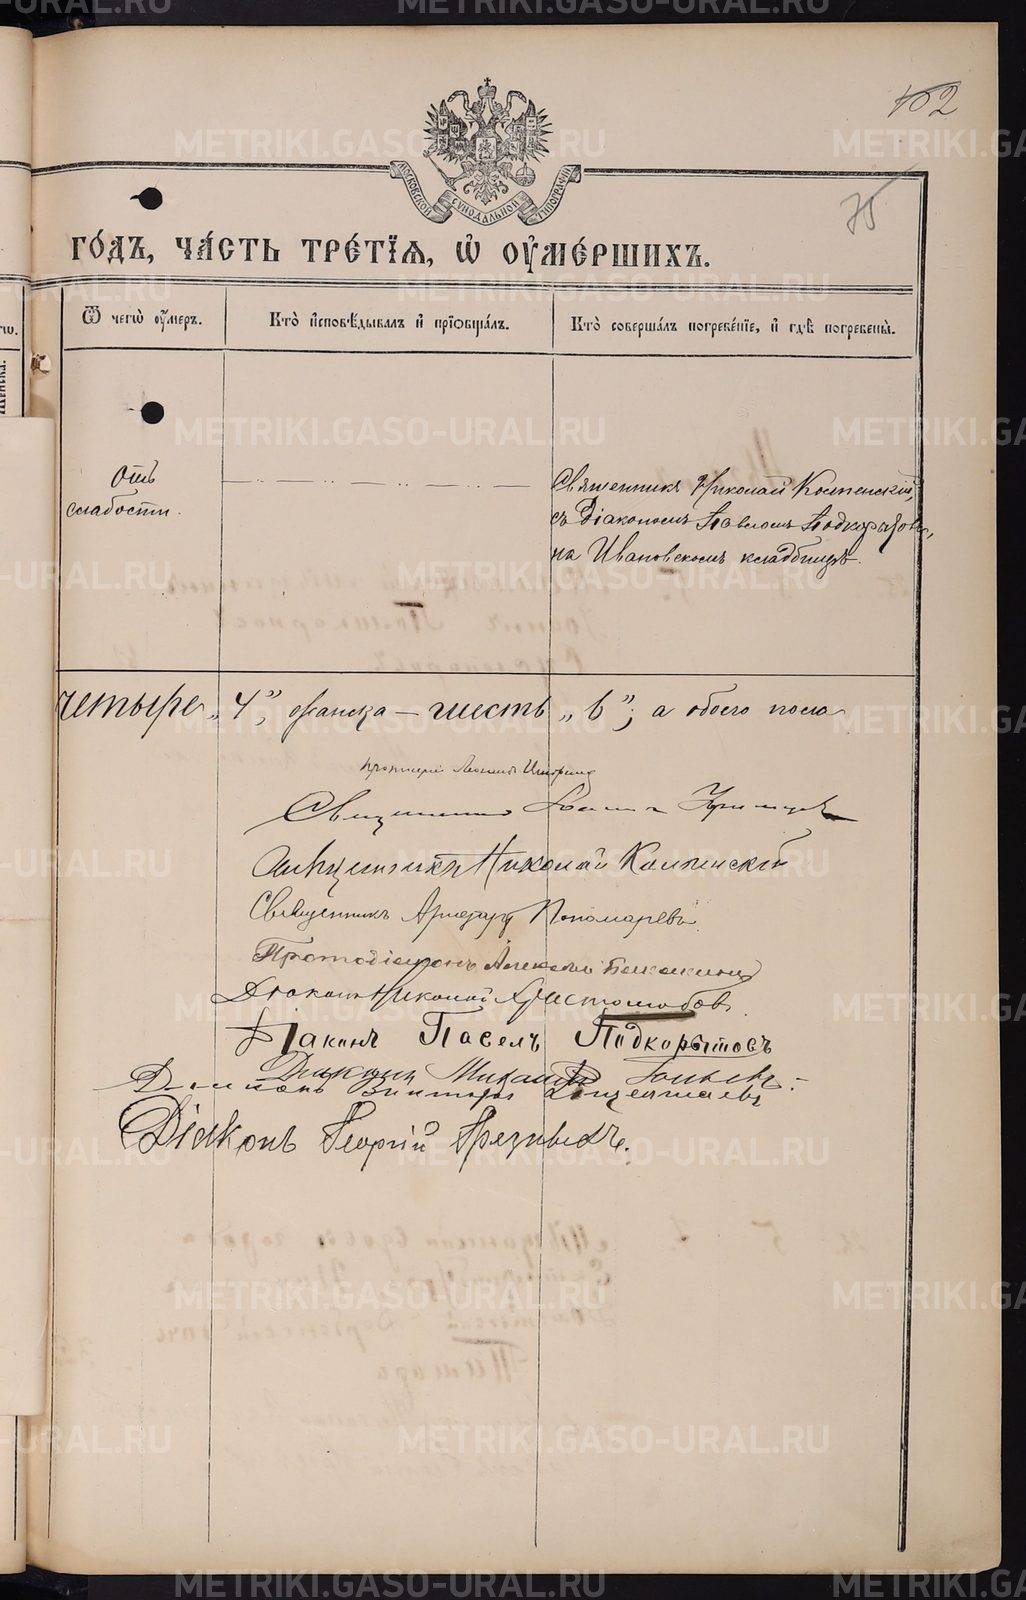 102
75
МОСКОВСКОЙ СѴНОДАЛЬНОЙ ТИПОГРАФІИ
ГО́ДЪ, ЧА́СТЬ ТРЕ́ТІЯ, Ѡ҆ ОУ҆МЕ́РШИХЪ.
Ѿ чегѡ̀ оу҆́меръ.
Кто̀ и҆сповѣ́дывалъ и҆ прїѡбща́лъ.
Кто̀ соверша́лъ погребе́нїе, и҆ гдѣ̀ погребены̀.
Отъ
слабости.
Священникъ Николай Колпенскій,
съ Діакономъ Павломъ Подкорытовымъ,
на Ивановскомъ кладбищѣ.
четыре „4”, женска — шесть „6”; а обоего пола
Протоіерей
Священникъ
Священникъ Николай Колпенскій
Священникъ Пономаревъ
Протодіаконъ Алексѣй
Діаконъ Николай Христолюбов
Діаконъ Павелъ Подкорытовъ
Діаконъ Михаилъ
Діаконъ Викторъ
Діаконъ Георгій
METRIKI.GASO-URAL.RU